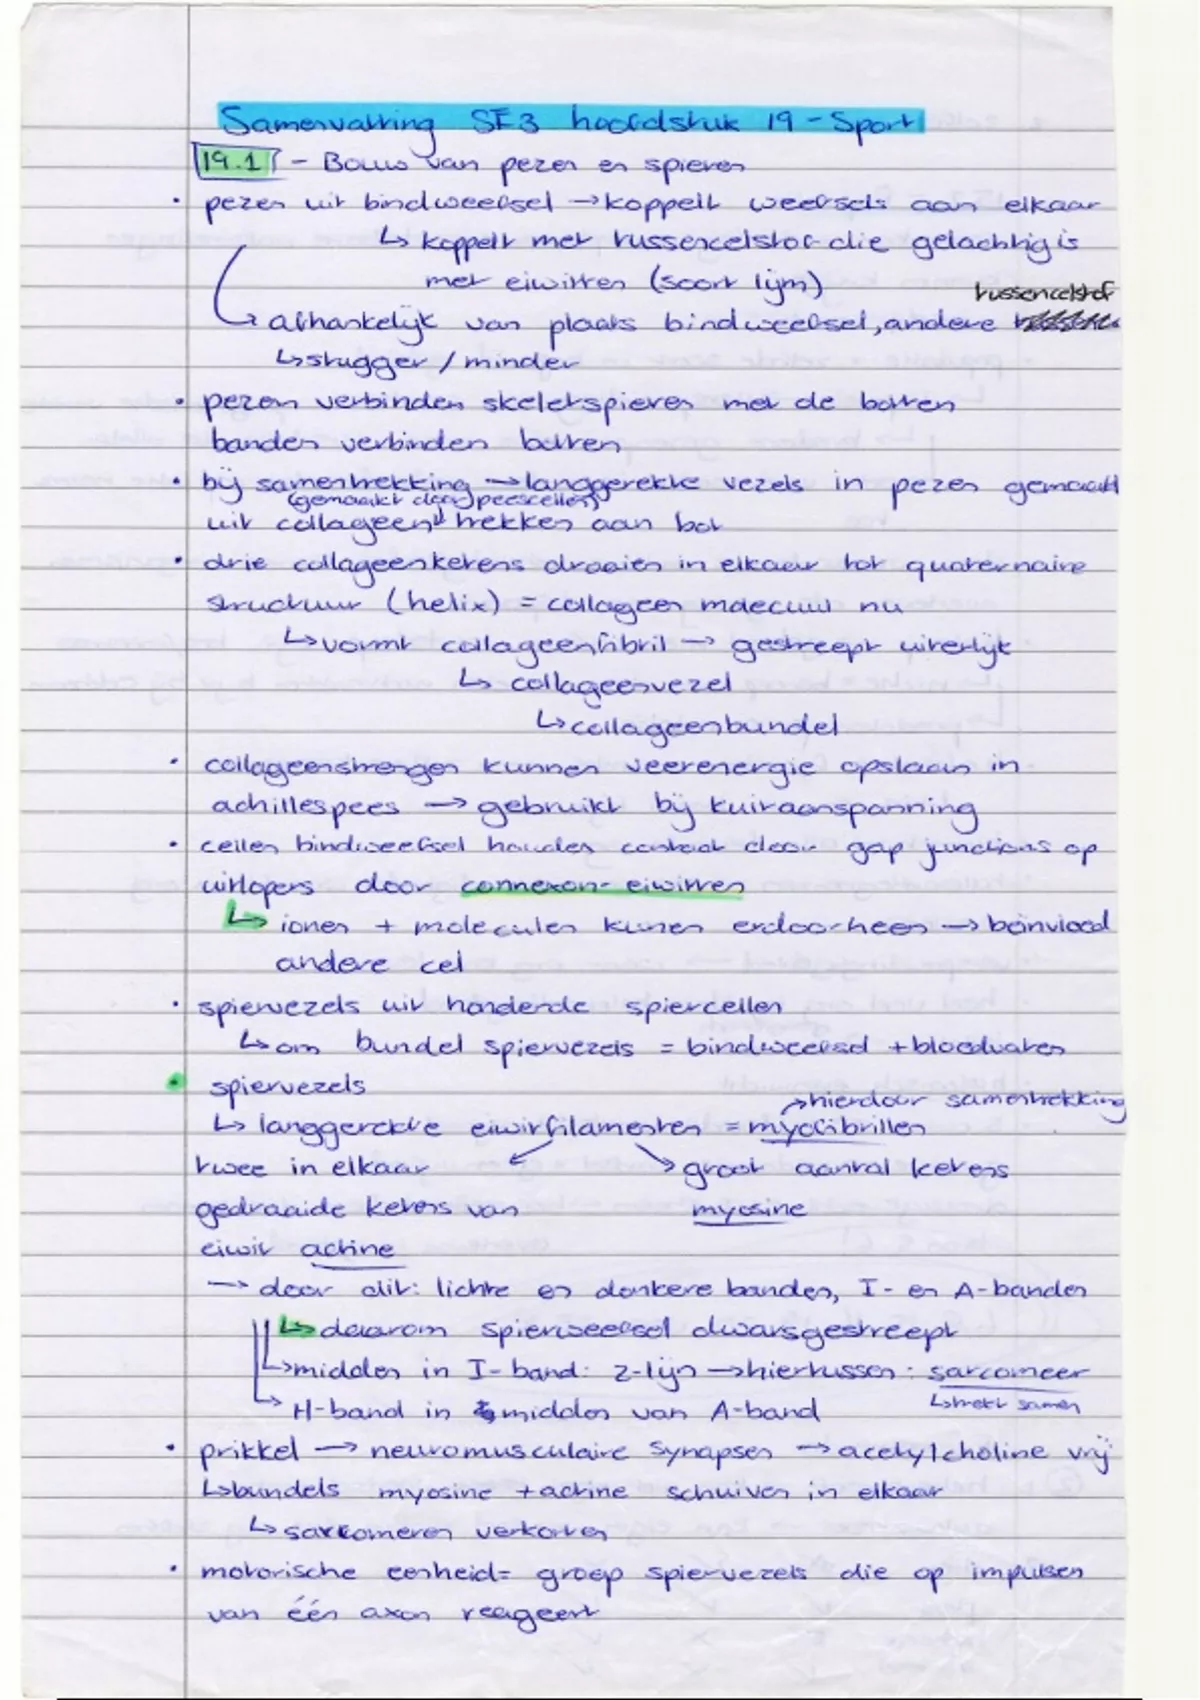 Samenvatting SE3 hoofdstuk 19 - Sport
19.1 - Bouw van pezen en spieren
• pezen uit bindweefsel → koppelt weefsels aan elkaar
↳ koppelt met tussencelstof die gelachtig is
met eiwitten (soort lijm)
tussencelstof
↳ afhankelijk van plaats bindweefsel, andere
↳ stugger / minder
• pezen verbinden skeletspieren met de botten
banden verbinden botten
• bij samentrekking → langgerekte vezels in pezen gemaakt
(gemaakt door peescellen)
uit collageen trekken aan bot
• drie collageenketens draaien in elkaar tot quaternaire
structuur (helix) = collageen molecuul nu
↳ vormt collageenfibril → gestreept uiterlijk
↳ collageenvezel
↳ collageenbundel
• collageenstrengen kunnen veerenergie opslaan in
achillespees → gebruikt bij kuitaanspanning
• cellen bindweefsel houden contact door gap junctions op
uitlopers door connexon-eiwitten
↳ ionen + moleculen kunnen erdoorheen → beïnvloed
andere cel
• spiervezels uit honderde spiercellen
↳ om bundel spiervezels = bindweefsel + bloedvaten
• spiervezels
→ hierdoor samentrekking
↳ langgerekte eiwitfilamenten = myofibrillen
twee in elkaar ↘ groot aantal ketens
gedraaide ketens van myosine
eiwit actine
→ door dit: lichte en donkere banden, I- en A-banden
↳ daarom spierweefsel dwarsgestreept
↳ midden in I-band: z-lijn → hiertussen: sarcomeer
↳ H-band in midden van A-band ↳ trekt samen
• prikkel → neuromusculaire synapsen → acetylcholine vrij
↳ bundels myosine + actine schuiven in elkaar
↳ sarcomeren verkorten
• motorische eenheid = groep spiervezels die op impulsen
van één axon reageert